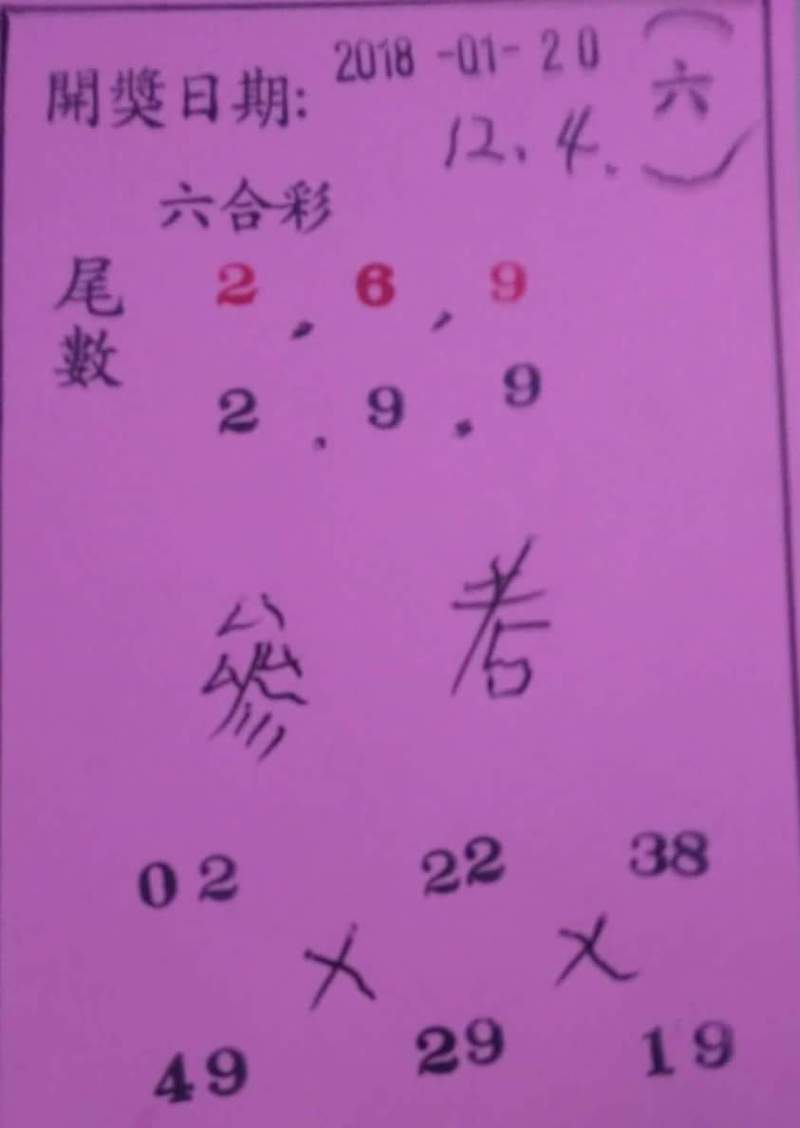 開獎日期: 2018-01-20 (六)
12、4.
六合彩
尾數 2 , 6 , 9
2 . 9 . 9
參考
02 22 38
X X
49 29 19